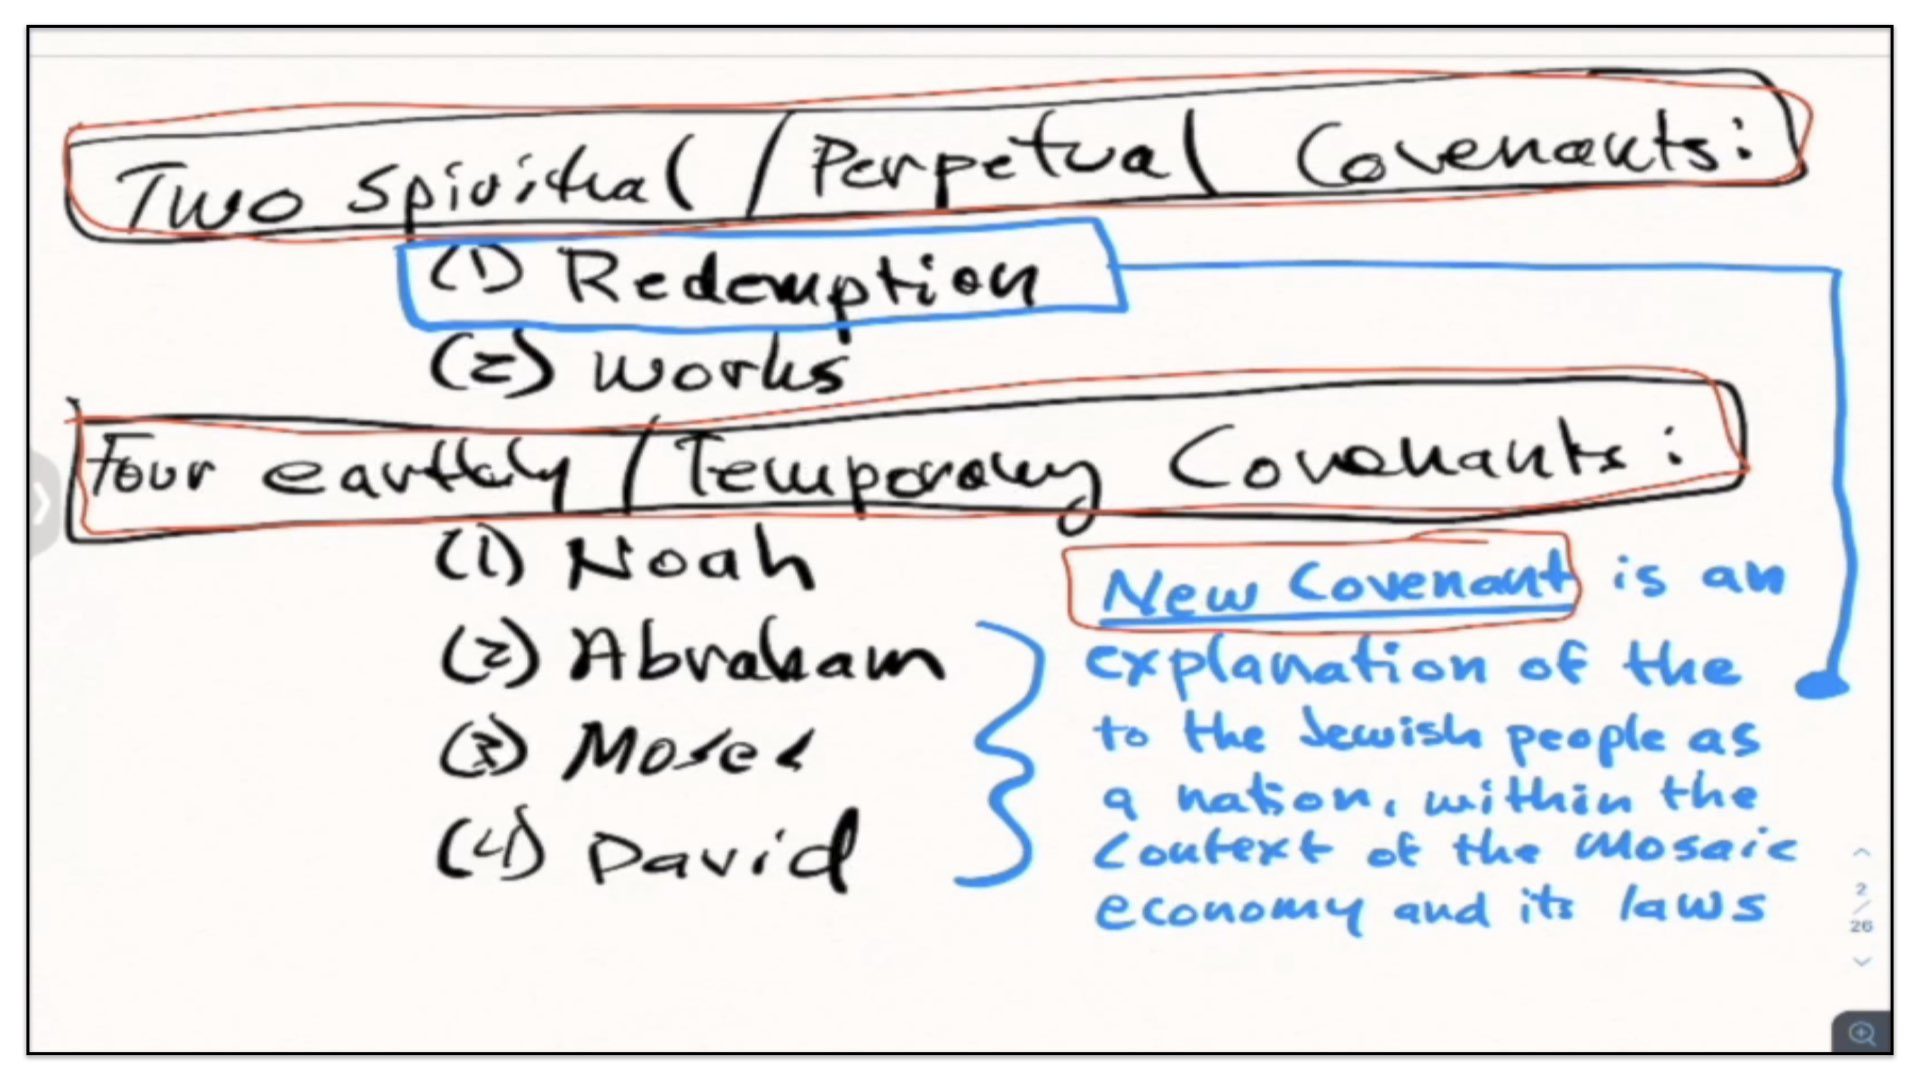 Two Spiritual / Perpetual Covenants:
(1) Redemption
(2) Works
Four earthly / Temporary Covenants:
(1) Noah
(2) Abraham
(3) Moses
(4) David
New Covenant is an
explanation of the
to the Jewish people as
a nation, within the
context of the Mosaic
economy and its laws
2
/
26